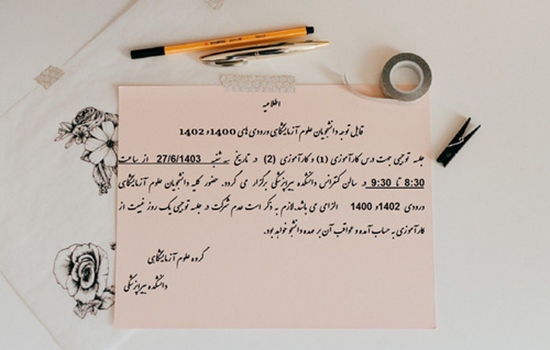 اطلاعیه
قابل توجه دانشجویان علوم آزمایشگاهی ورودی های 1400 و 1402
جلسه توجیهی جهت درس کارآموزی (1) و کارآموزی (2) در تاریخ سه شنبه 27/6/1403 از ساعت
8:30 تا 9:30 در سالن کنفرانس دانشکده پیراپزشکی برگزار می گردد. حضور کلیه دانشجویان علوم آزمایشگاهی
ورودی 1402 و 1400 الزامی می باشد. لازم به ذکر است عدم شرکت در جلسه توجیهی یک روز غیبت از
کارآموزی به حساب آمده و عواقب آن بر عهده دانشجو خواهد بود.
گروه علوم آزمایشگاهی
دانشکده پیراپزشکی